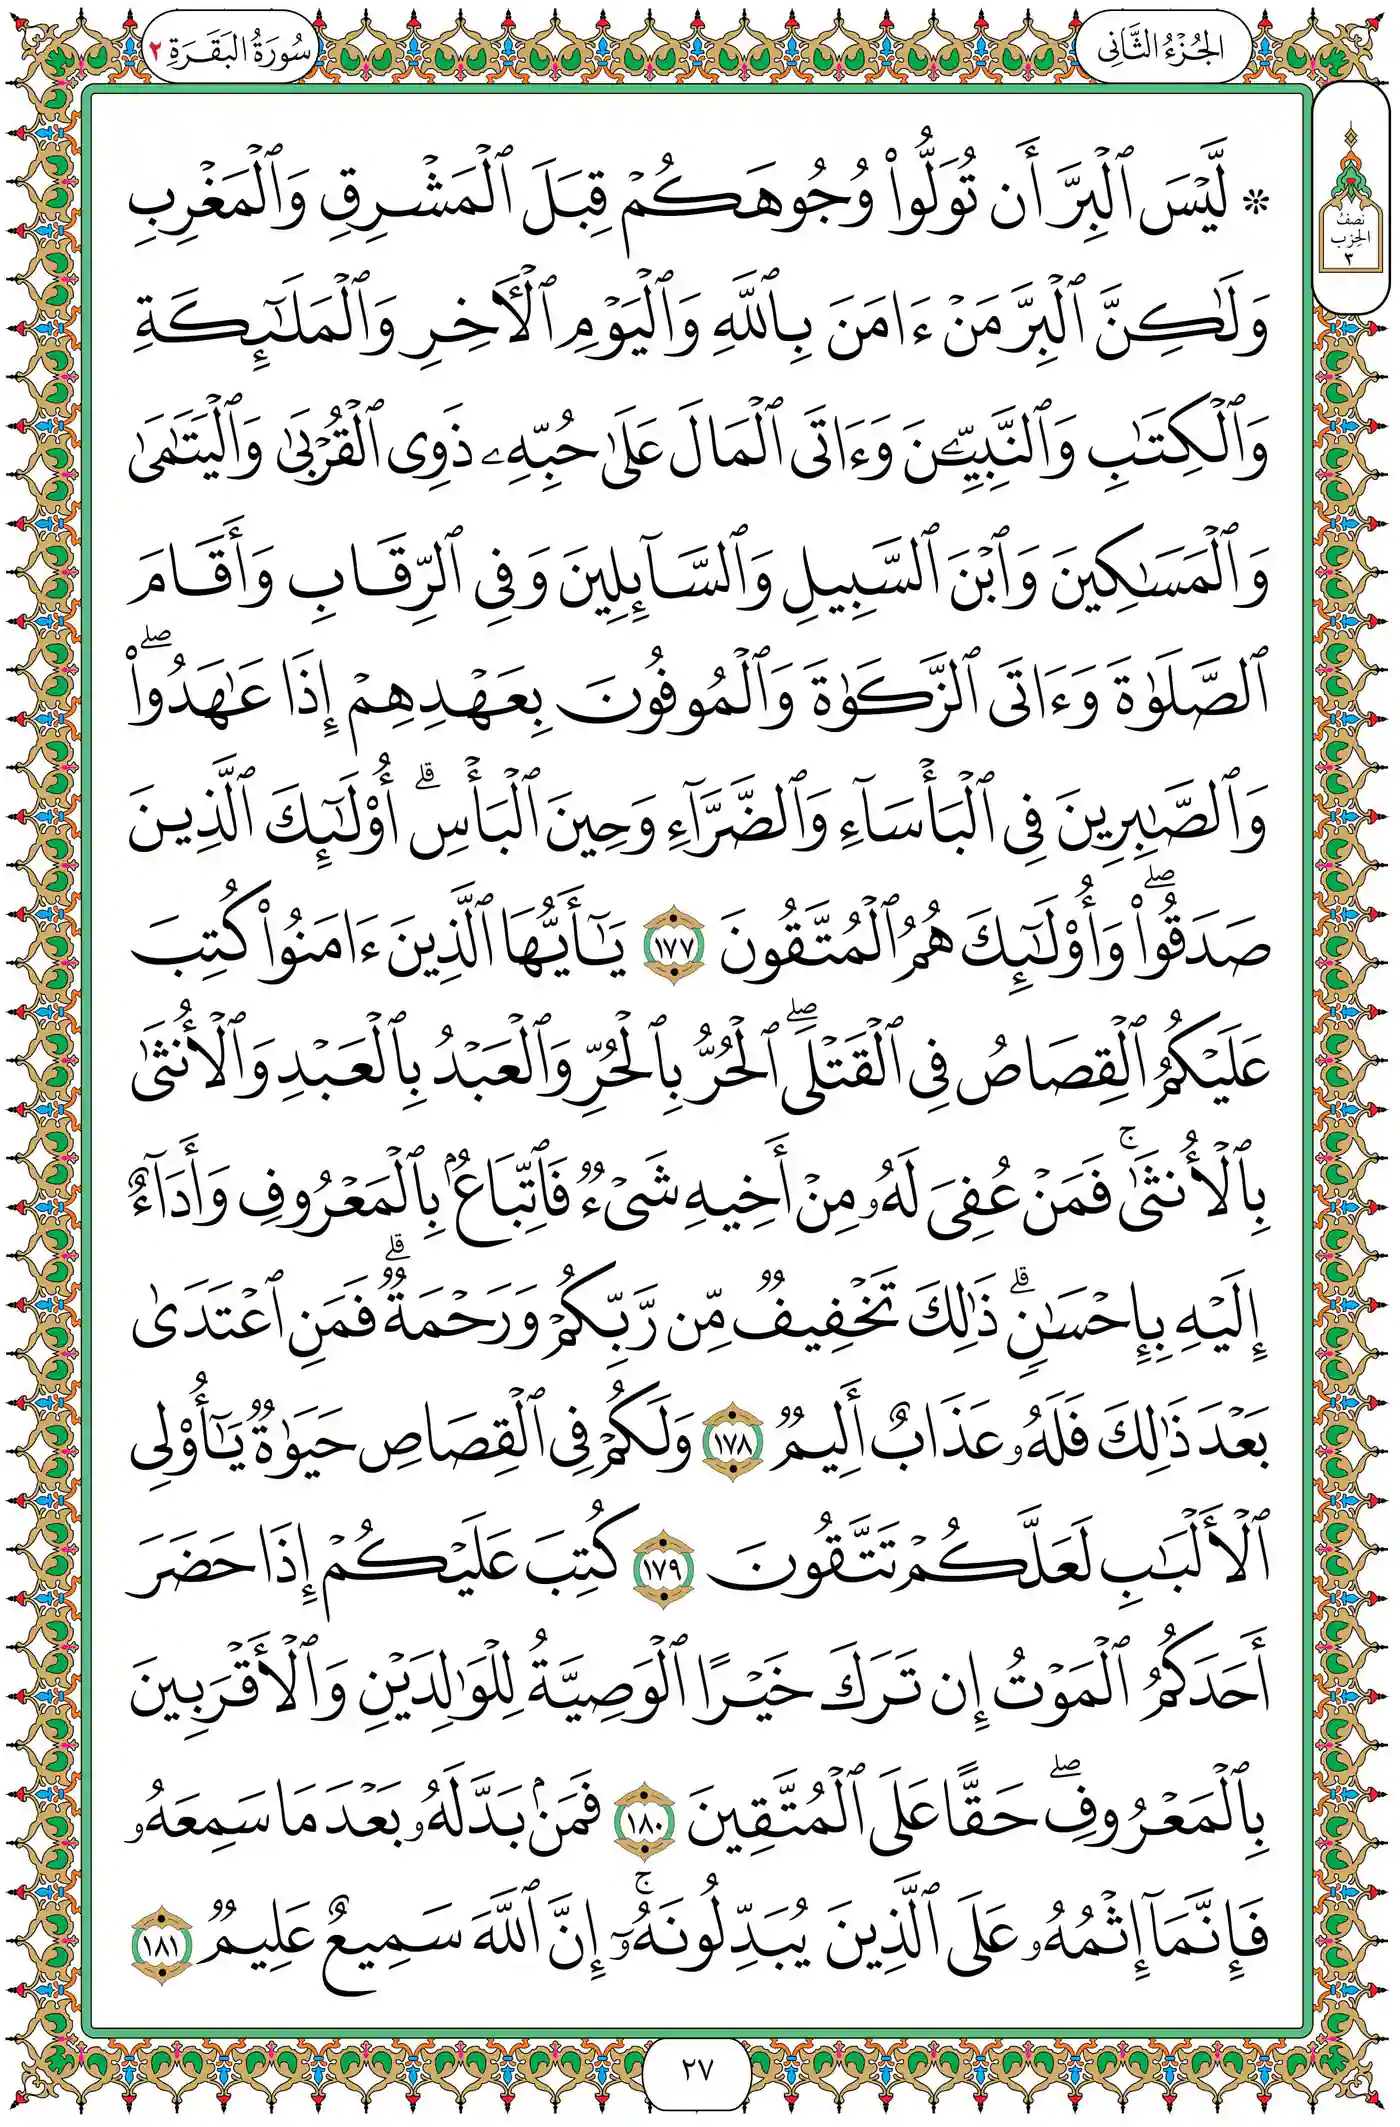 الجُزْءُ الثَّانِي
سُورَةُ البَقَرَةِ ٢
نصْفُ
الحِزْب
٣
۞ لَّيۡسَ ٱلۡبِرَّ أَن تُوَلُّواْ وُجُوهَكُمۡ قِبَلَ ٱلۡمَشۡرِقِ وَٱلۡمَغۡرِبِ
وَلَٰكِنَّ ٱلۡبِرَّ مَنۡ ءَامَنَ بِٱللَّهِ وَٱلۡيَوۡمِ ٱلۡأٓخِرِ وَٱلۡمَلَٰٓئِكَةِ
وَٱلۡكِتَٰبِ وَٱلنَّبِيِّـۧنَ وَءَاتَى ٱلۡمَالَ عَلَىٰ حُبِّهِۦ ذَوِي ٱلۡقُرۡبَىٰ وَٱلۡيَتَٰمَىٰ
وَٱلۡمَسَٰكِينَ وَٱبۡنَ ٱلسَّبِيلِ وَٱلسَّآئِلِينَ وَفِي ٱلرِّقَابِ وَأَقَامَ
ٱلصَّلَوٰةَ وَءَاتَى ٱلزَّكَوٰةَ وَٱلۡمُوفُونَ بِعَهۡدِهِمۡ إِذَا عَٰهَدُواْۖ
وَٱلصَّٰبِرِينَ فِي ٱلۡبَأۡسَآءِ وَٱلضَّرَّآءِ وَحِينَ ٱلۡبَأۡسِۗ أُوْلَٰٓئِكَ ٱلَّذِينَ
صَدَقُواْۖ وَأُوْلَٰٓئِكَ هُمُ ٱلۡمُتَّقُونَ ١٧٧ يَٰٓأَيُّهَا ٱلَّذِينَ ءَامَنُواْ كُتِبَ
عَلَيۡكُمُ ٱلۡقِصَاصُ فِي ٱلۡقَتۡلَىۖ ٱلۡحُرُّ بِٱلۡحُرِّ وَٱلۡعَبۡدُ بِٱلۡعَبۡدِ وَٱلۡأُنثَىٰ
بِٱلۡأُنثَىٰۚ فَمَنۡ عُفِيَ لَهُۥ مِنۡ أَخِيهِ شَيۡءٞ فَٱتِّبَاعُۢ بِٱلۡمَعۡرُوفِ وَأَدَآءٌ
إِلَيۡهِ بِإِحۡسَٰنٖۗ ذَٰلِكَ تَخۡفِيفٞ مِّن رَّبِّكُمۡ وَرَحۡمَةٞۗ فَمَنِ ٱعۡتَدَىٰ
بَعۡدَ ذَٰلِكَ فَلَهُۥ عَذَابٌ أَلِيمٞ ١٧٨ وَلَكُمۡ فِي ٱلۡقِصَاصِ حَيَوٰةٞ يَٰٓأُوْلِي
ٱلۡأَلۡبَٰبِ لَعَلَّكُمۡ تَتَّقُونَ ١٧٩ كُتِبَ عَلَيۡكُمۡ إِذَا حَضَرَ
أَحَدَكُمُ ٱلۡمَوۡتُ إِن تَرَكَ خَيۡرًا ٱلۡوَصِيَّةُ لِلۡوَٰلِدَيۡنِ وَٱلۡأَقۡرَبِينَ
بِٱلۡمَعۡرُوفِۖ حَقًّا عَلَى ٱلۡمُتَّقِينَ ١٨٠ فَمَنۢ بَدَّلَهُۥ بَعۡدَ مَا سَمِعَهُۥ
فَإِنَّمَآ إِثۡمُهُۥ عَلَى ٱلَّذِينَ يُبَدِّلُونَهُۥٓۚ إِنَّ ٱللَّهَ سَمِيعٌ عَلِيمٞ ١٨١
٢٧